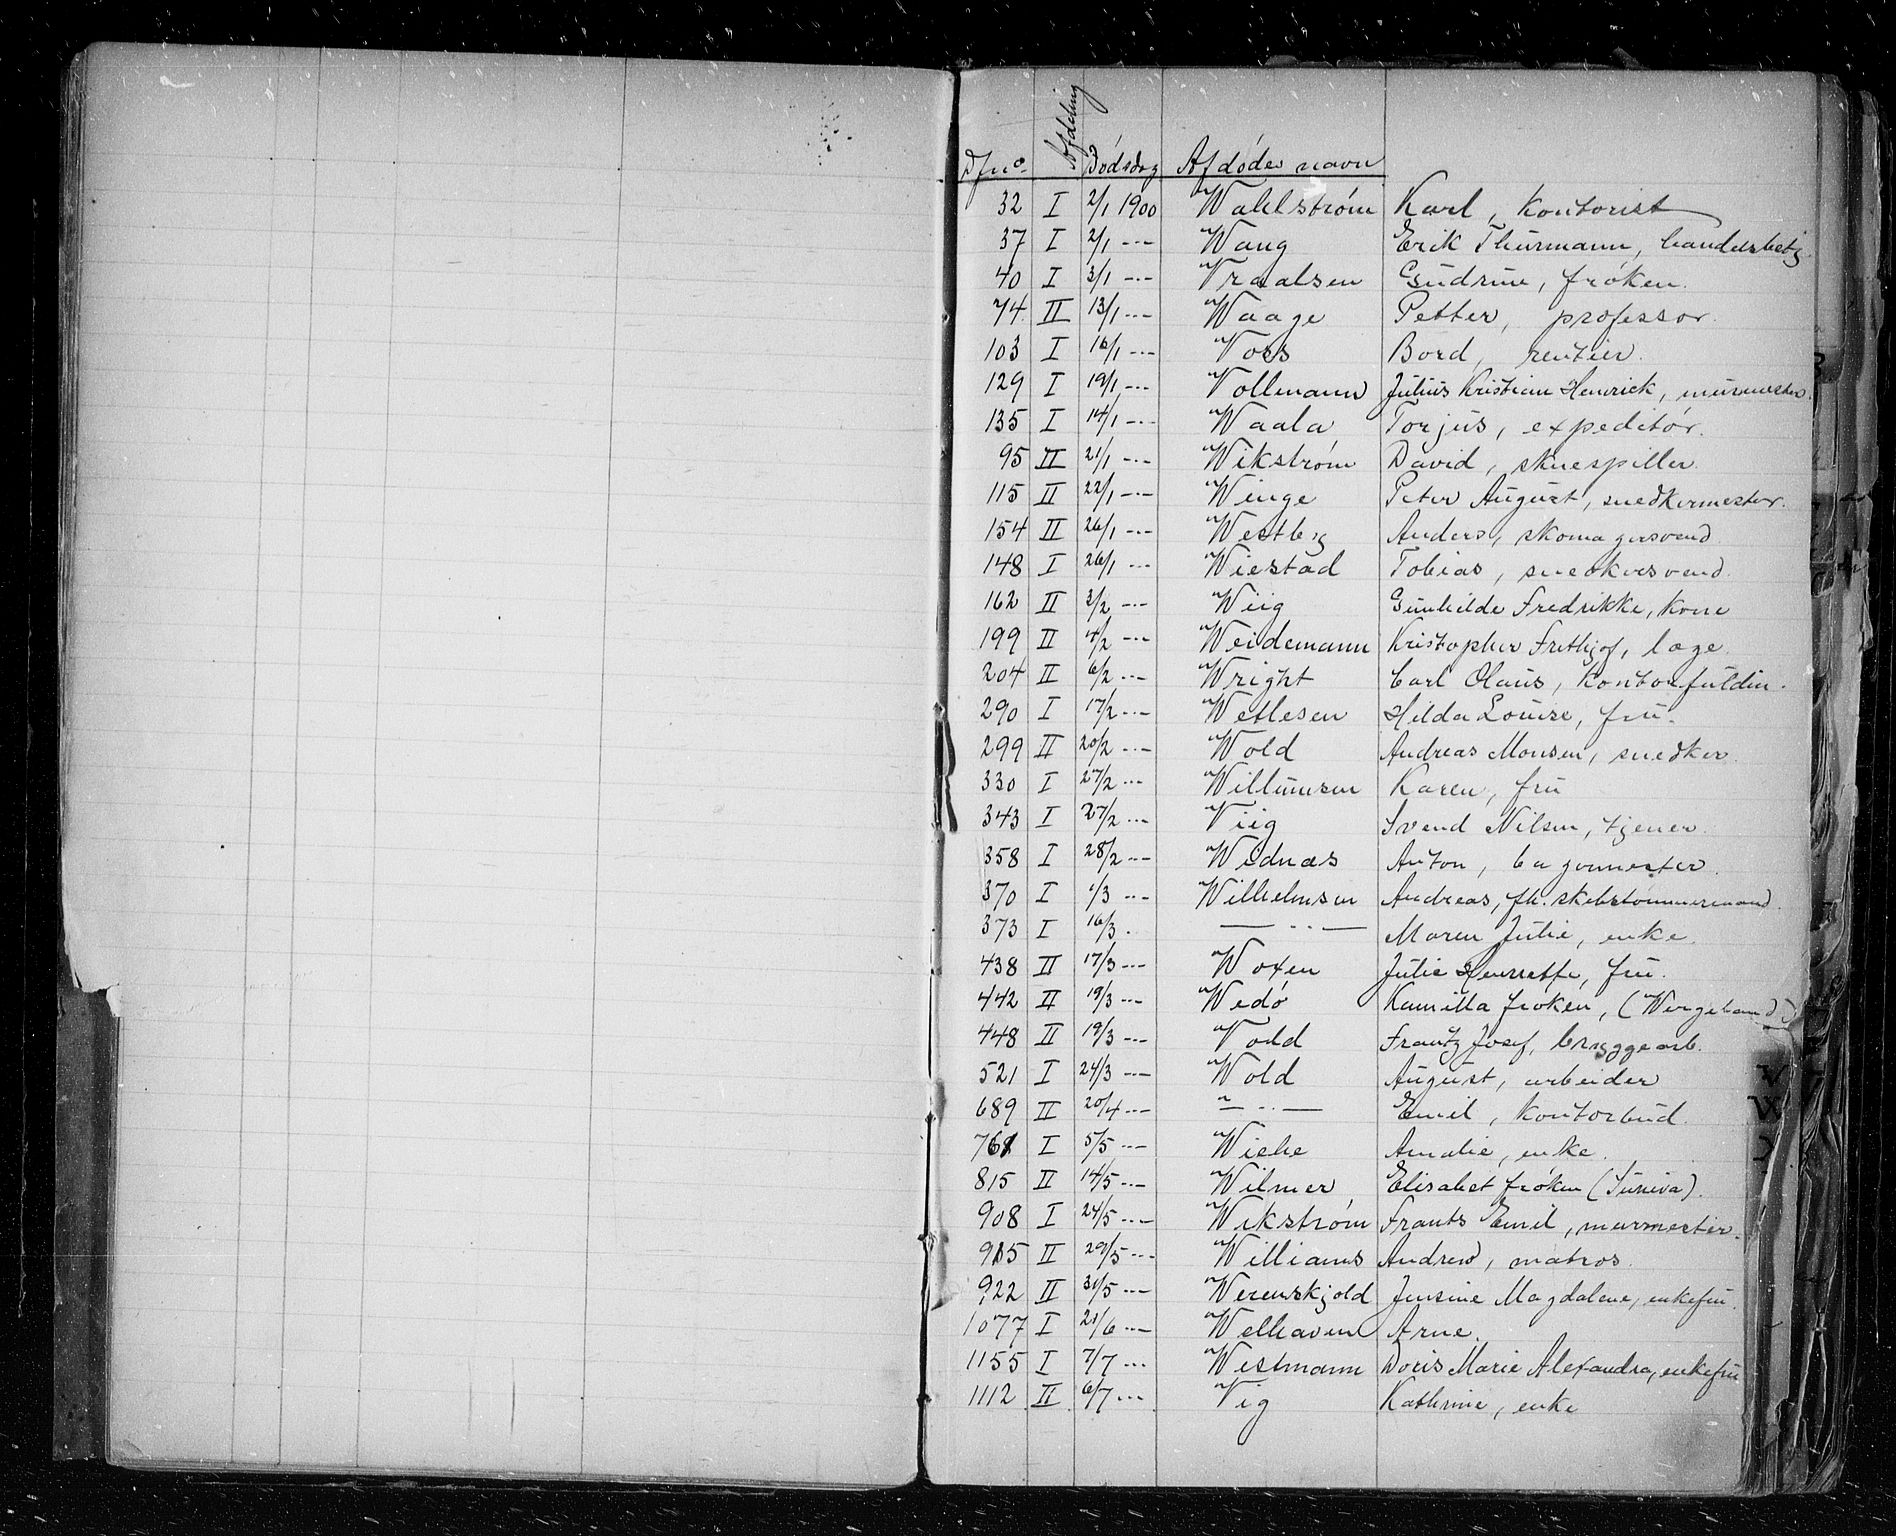 Dfno. Afdeling Dødsdag Afdødes navn
32 I 2/1 1900 Wahlstrøm Karl, kontorist
37 I 2/1 -.- Wang Erik Thurmann, handelsbetj.
40 I 3/1 -.- Vraalsen Gudrun, frøken.
74 II 13/1 -.- Waage Petter, professor.
103 I 16/1 -.- Voss Bord, rentier.
129 I 19/1 -.- Vollmann Julius Kristian Henrick, murmester.
135 I 14/1 -.- Waala Torjus, expeditør.
95 II 21/1 -.- Wikstrøm David, skuespiller.
115 II 22/1 -.- Winge Peter August, snedkermester.
154 II 26/1 -.- Westbg Anders, skomagersvend.
148 I 26/1 -.- Wiestad Tobias, snedkersvend.
162 II 3/2 -.- Wiig Gunhilde Fredrikke, kone
199 II 4/2 -.- Weidemann Kristopher Frithjof, læge.
204 II 6/2 -.- Wright Carl Olaus, kontorfuldm.
290 I 17/2 -.- Wetlesen Hilda Louise, fru.
299 II 20/2 -.- Wold Andreas Monsen, snedker.
330 I 27/2 -.- Willumsen Karen, fru
343 I 27/2 -.- Viig Svend Nilsen, tjener.
358 I 28/2 -.- Widnæs Anton, bagermester.
370 I 1/3 -.- Wilhelmsen Andreas, fh. skibstømmermand.
373 I 16/3 . — .. — Maren Julie, enke.
438 II 17/3 -.- Woxen Julie Henriette, fru.
442 II 19/3 -.- Wedø Kamilla frøken, (Wergeland)
448 II 19/3 -.- Vold Frantz Josef, bryggearb.
521 I 24/3 -.- Wold August, arbeider
689 II 20/4 -.- — .. — Emil, kontorbud.
761 I 5/5 -.- Wiehe Amalie, enke.
815 II 14/5 -.- Wilmer Elisabet frøken (Suniva).
908 I 24/5 -.- Wikstrøm Frants Emil, murmester.
915 II 29/5 -.- Williams Andrew, matros.
922 II 31/5 -.- Werenskjold Jensine Magdalene, enkefru.
1077 I 21/6 -.- Welhaven Arne.
1155 I 7/7 -.- Westmann Doris Marie Alexandra, enkefru
1112 II 6/7 -.- Vig Kathrine, enke